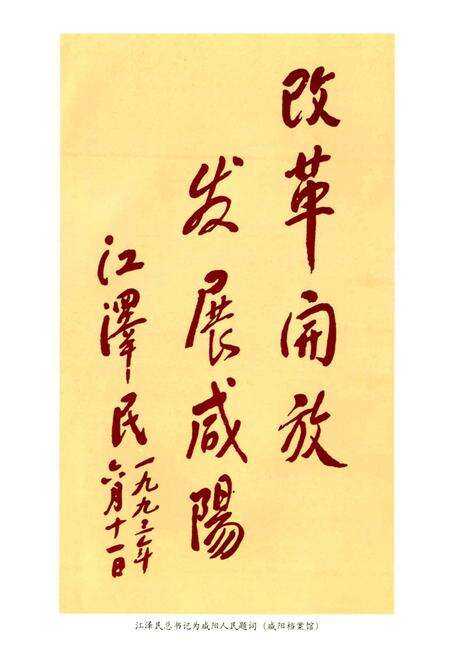 改革开放
发展咸陽
江澤民
一九九三年
六月十一日
江泽民总书记为咸阳人民题词（咸阳档案馆）